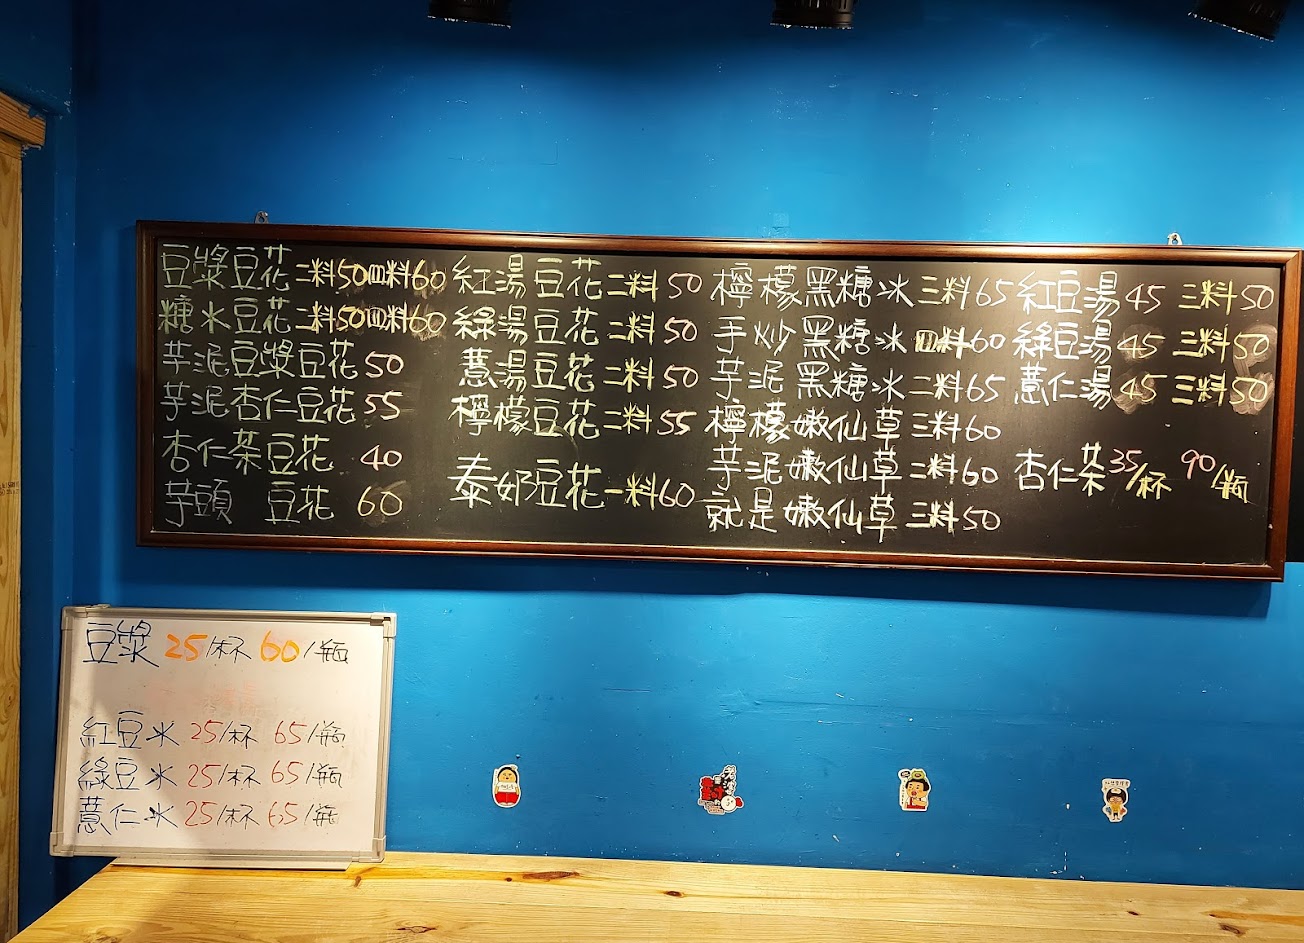 豆漿豆花 二料50 四料60
糖水豆花 二料50 四料60
芋泥豆漿豆花 50
芋泥杏仁豆花 55
杏仁茶豆花 40
芋頭 豆花 60
紅湯豆花 二料 50
綠湯豆花 二料 50
薏湯豆花 二料 50
檸檬豆花 二料 55
泰奶豆花 一料60
檸檬黑糖冰 三料65
手炒黑糖冰 四料60
芋泥黑糖冰 二料65
檸檬嫩仙草 三料60
芋泥嫩仙草 二料60
就是嫩仙草 三料50
紅豆湯 45 三料50
綠豆湯 45 三料50
薏仁湯 45 三料50
杏仁茶 35/杯 90/瓶
豆漿 25/杯 60/瓶
紅豆冰 25/杯 65/瓶
綠豆冰 25/杯 65/瓶
薏仁冰 25/杯 65/瓶